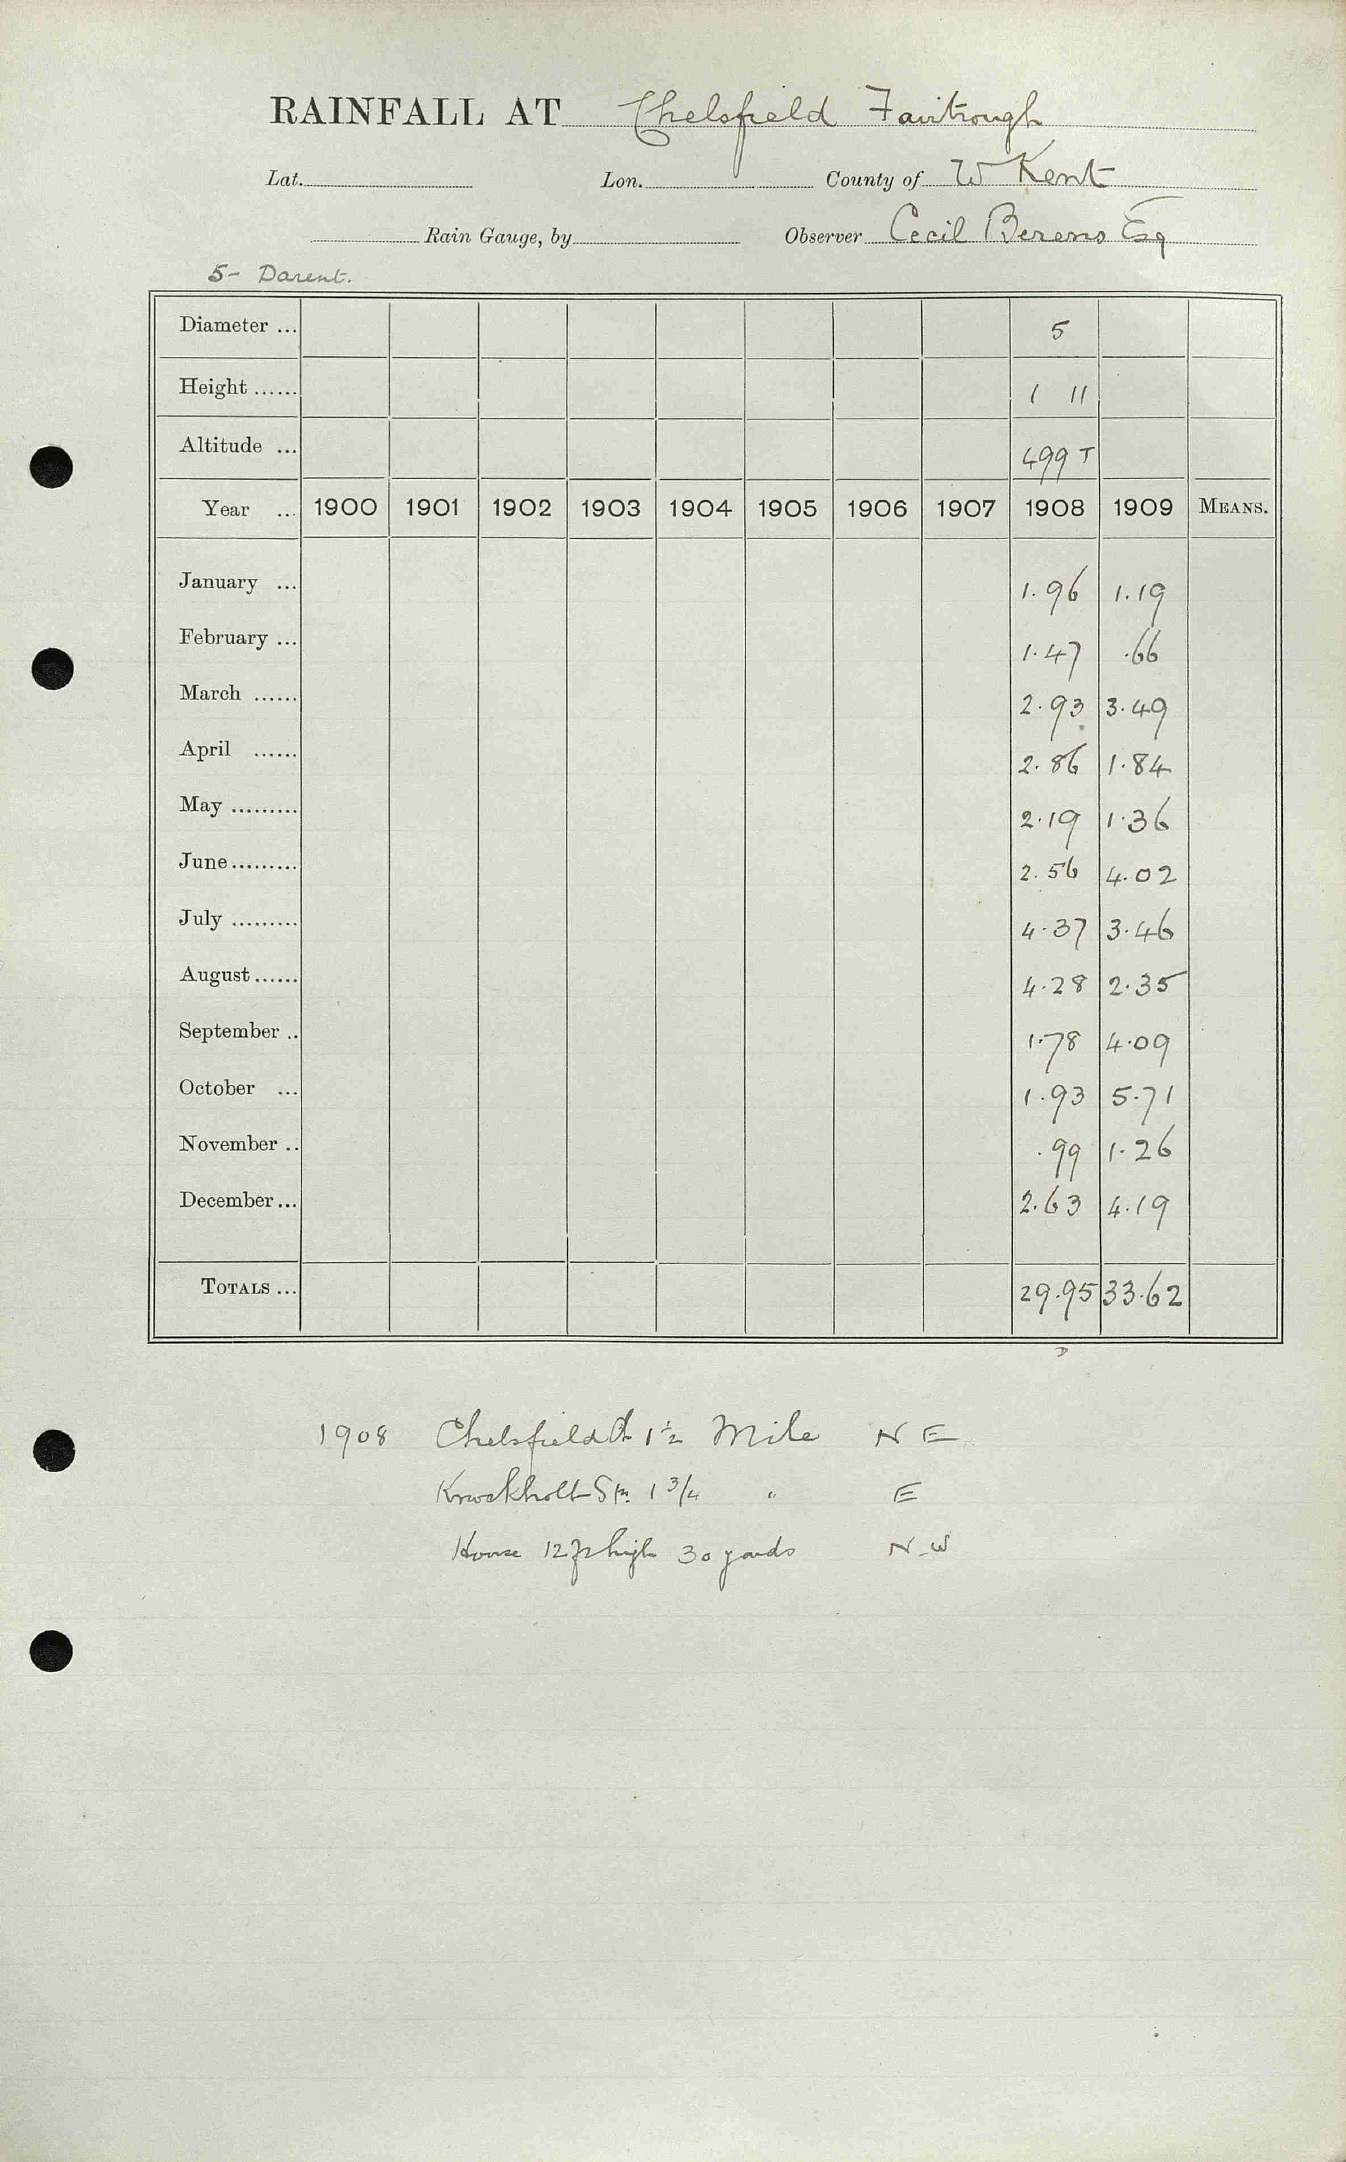 RAINFALL AT Chelsfield Fairtrough
Lat. Lon. County of W Kent
Rain Gauge, by Observer Cecil Berens Esq
5- Darent.
Diameter ... 5
Height ...... 1 11
Altitude ... 499 T
Year ... 1900 1901 1902 1903 1904 1905 1906 1907 1908 1909 MEANS.
January ... 1.96 1.19
February ... 1.47 .66
March ...... 2.93 3.49
April ...... 2.86 1.84
May ......... 2.19 1.36
June ......... 2.56 4.02
July ......... 4.37 3.46
August ...... 4.28 2.35
September .. 1.78 4.09
October ... 1.93 5.71
November .. .99 1.26
December ... 2.63 4.19
TOTALS ... 29.95 33.62
1908 Chelsfield 1½ Mile N E
Knockholt Stn. 1 3/4 " E
House 12 ft high 30 yards N.W